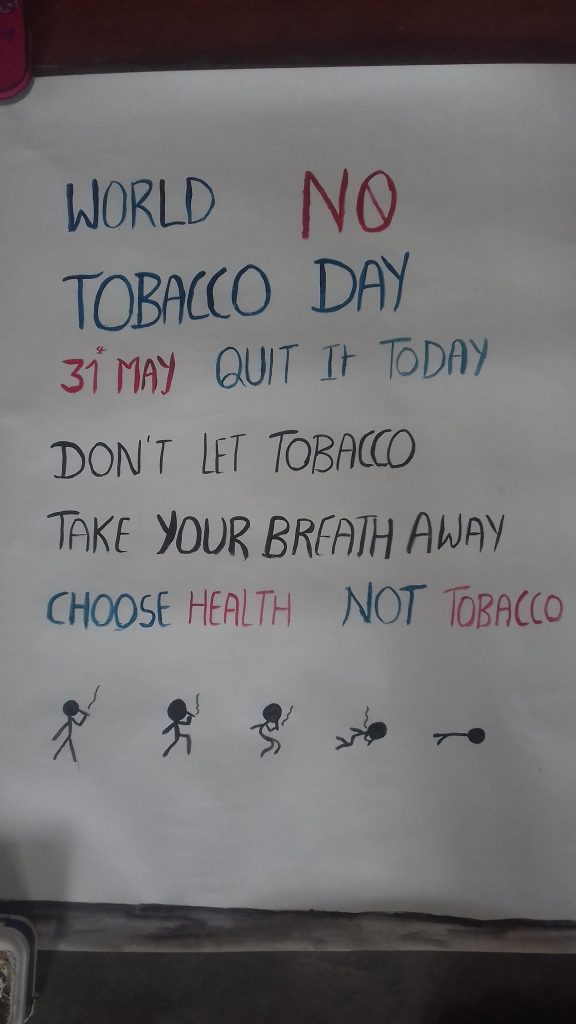 WORLD NO
TOBACCO DAY
31st MAY QUIT It TODAY
DON'T LET TOBACCO
TAKE YOUR BREATH AWAY
CHOOSE HEALTH NOT TOBACCO